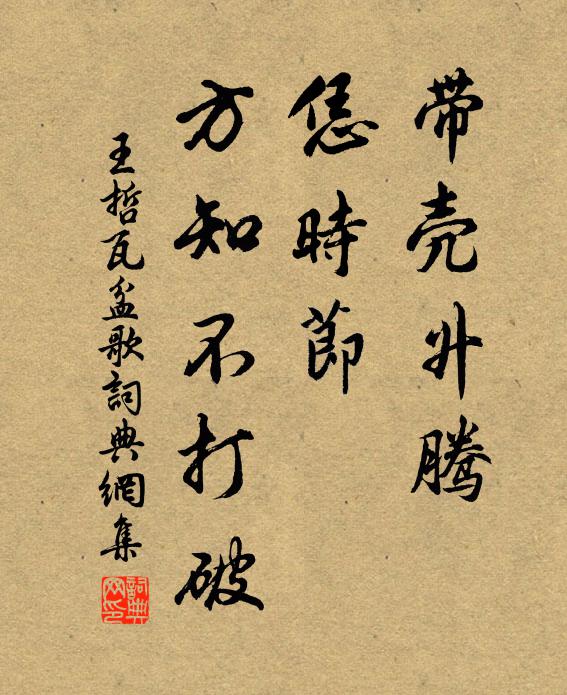 带壳升腾
恁時節
方知不打破
王哲瓦盆歌詞典網集
詞典网印